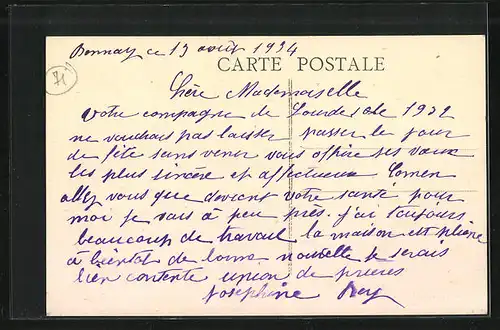 Bonnay ce 13 août 1934
71
CARTE POSTALE
Chère Mademoiselle
votre compagne de Lourdes de 1932
ne voudrais pas laisser passer le jour
de fête sans venir vous offrire ses vœux
les plus sincère et affectueux Comen
allez vous que devient votre santé pour
moi je vais à peu près. j'ai toujours
beaucoup de travail la maison est pleine
à bientôt de bonne nouvelle je serais
bien contente union de prières
Josephine Rey